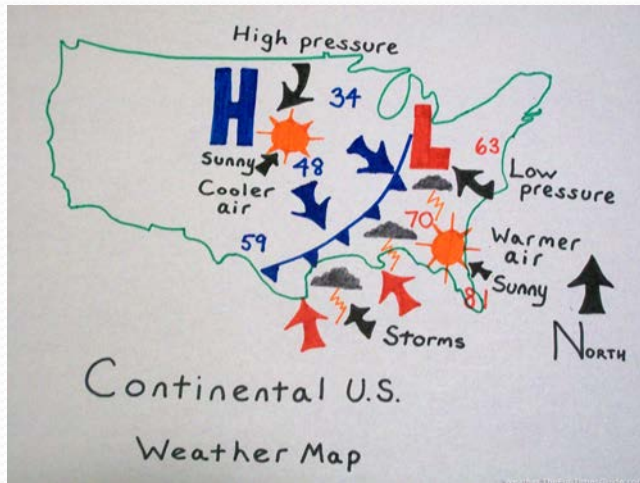 High pressure
H
34
L
63
Sunny
48
Low
pressure
Cooler
air
70
59
Warmer
air
Sunny
81
Storms
NORTH
Continental U.S.
Weather Map